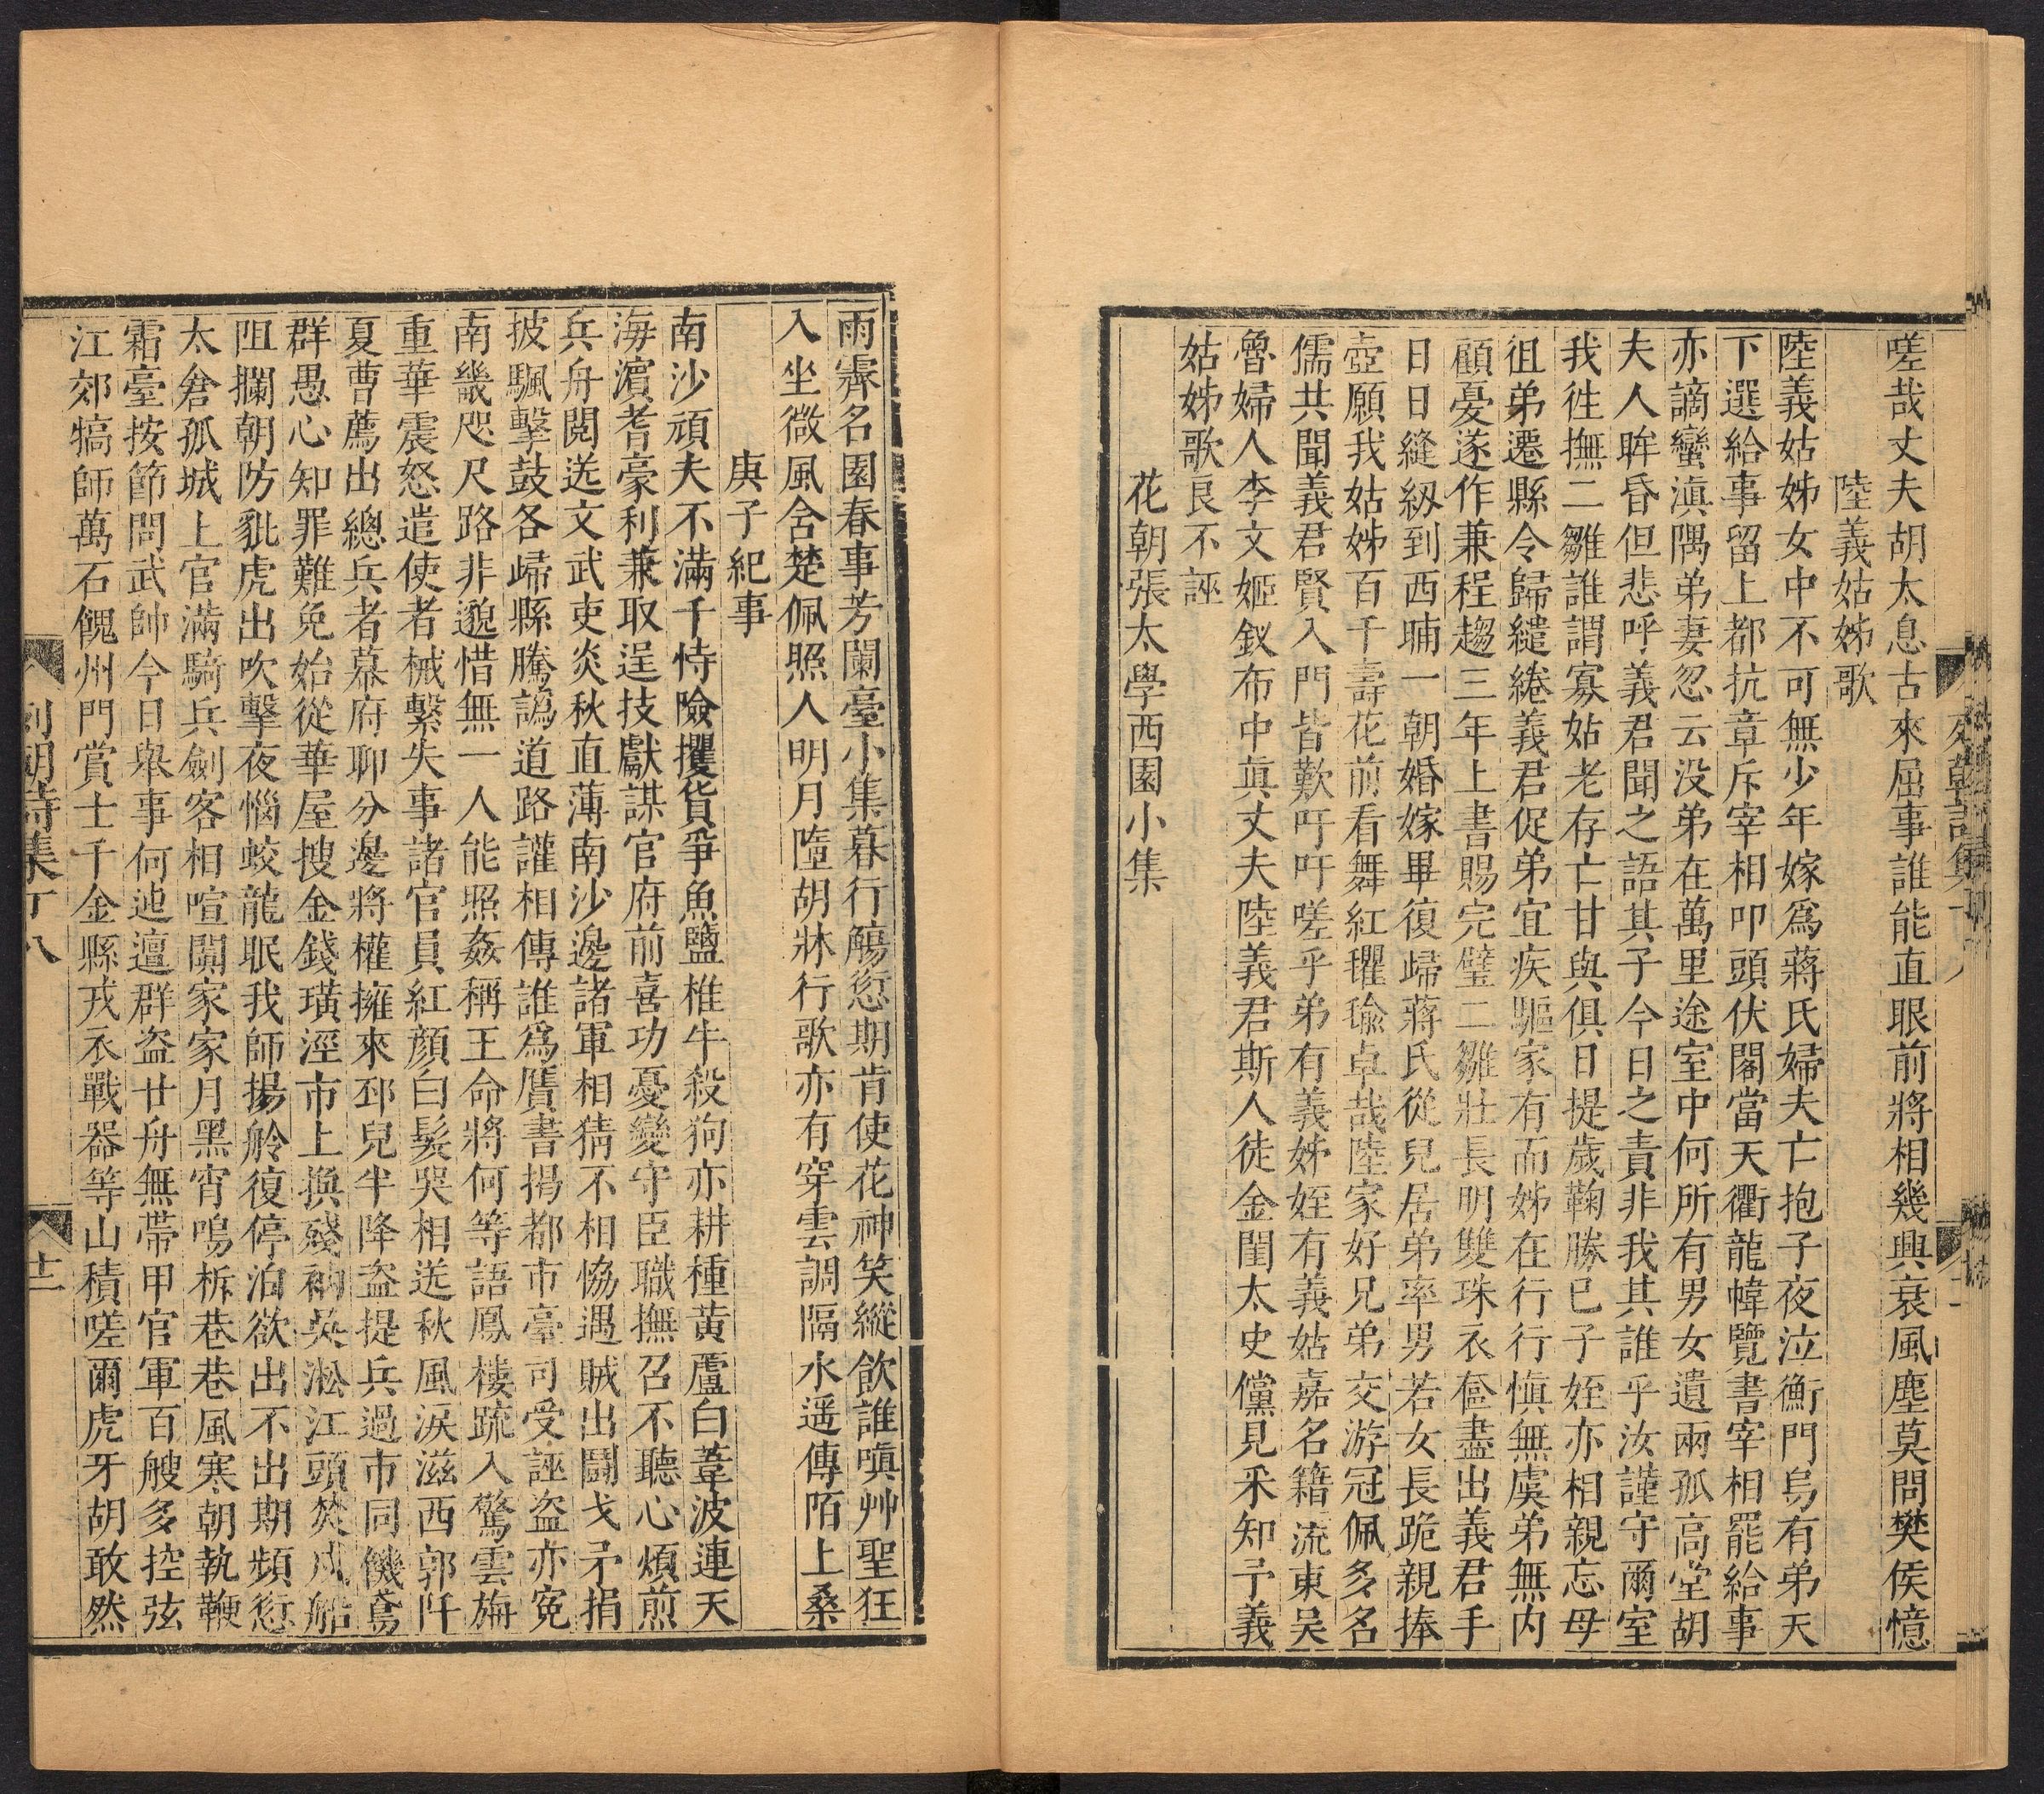 嗟哉丈夫胡太息古來屈事誰能直眼前將相幾興衰風塵莫問樊侯憶
陸義姑姊歌
陸義姑姊女中不可無少年嫁爲蔣氏婦夫亡抱子夜泣衡門烏有弟天
下選給事留上都抗章斥宰相叩頭伏閣當天衢龍幃覽書宰相罷給事
亦謫蠻滇隅弟妻忽云没弟在萬里途室中何所有男女遺兩孤高堂胡
夫人眸昏但悲呼義君聞之語其子今日之責非我其誰乎汝謹守爾室
我徃撫二雛誰謂寡姑老存亡甘與俱日提歲鞠勝已子姪亦相親忘母
徂弟遷縣令歸繾綣義君促弟宜疾驅家有而姊在行行慎無虞弟無内
顧憂遂作兼程趨三年上書賜完璧二雛壯長明雙珠衣奩盡出義君手
日日縫紉到西晡一朝婚嫁畢復歸蔣氏從兒居弟率男若女長跪親捧
壺願我姑姊百千壽花前看舞紅瓘瑜卓哉陸家好兄弟交游冠佩多名
儒共聞義君賢入門皆歎吁吁嗟乎弟有義姊姪有義姑嘉名籍流東吴
魯婦人李文姬釵布中眞丈夫陸義君斯人徒金閨太史儻見釆知予義
姑姊歌良不誣
花朝張太學西園小集
雨霽名園春事芳闌臺小集暮行觴愆期肯使花神笑縱飲誰嗔艸聖狂
入坐微風舍楚佩照人明月墮胡牀行歌亦有穿雲調隔水遥傳陌上桑
庚子紀事
南沙頑夫不滿千恃險攫貨爭魚鹽椎牛殺狗亦耕種黄蘆白葦波連天
海濵耆豪利兼取逞技獻謀官府前喜功憂變守臣職撫召不聽心煩煎
兵舟閲送文武吏炎秋直薄南沙邊諸軍相猜不相恊遇賊出鬪戈矛捐
披颿擊鼓各歸縣騰謟道路讙相傳誰爲贋書揭都市臺司受誣盗亦寃
南畿咫尺路非邈惜無一人能照姦稱王命將何等語鳳樓䟽入驚雲旃
重華震怒遣使者械繫失事諸官員紅顔白髮哭相送秋風淚滋西郭阡
夏曹薦出總兵者幕府聊分邊將權擁來邳兒半降盗提兵過市同饑鳶
群愚心知罪難免始從華屋搜金錢璜涇市上換殘衲吳淞江頭焚戍船
阻攔朝防豼虎出吹擊夜惱蛟龍眠我師揚舲復停泊欲出不出期頻愆
太倉孤城上官滿騎兵劍客相喧闐家家月黑宵鳴柝巷巷風寒朝執鞭
霜臺按節問武帥今日舉事何迍邅群盗廿舟無帶甲官軍百艘多控弦
江郊犒師萬石餽州門賞士千金縣戎衣戰器等山積嗟爾虎牙胡敢然
列朝詩集丁八
十二